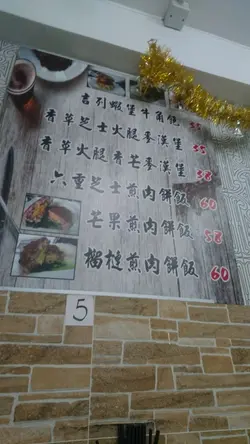 吉列蝦堡牛角飽 35
香草芝士火腿麥漢堡 35
香草火腿香芒麥漢堡 38
六重芝士煎肉餅飯 60
芒果煎肉餅飯 58
榴槤煎肉餅飯 60
5